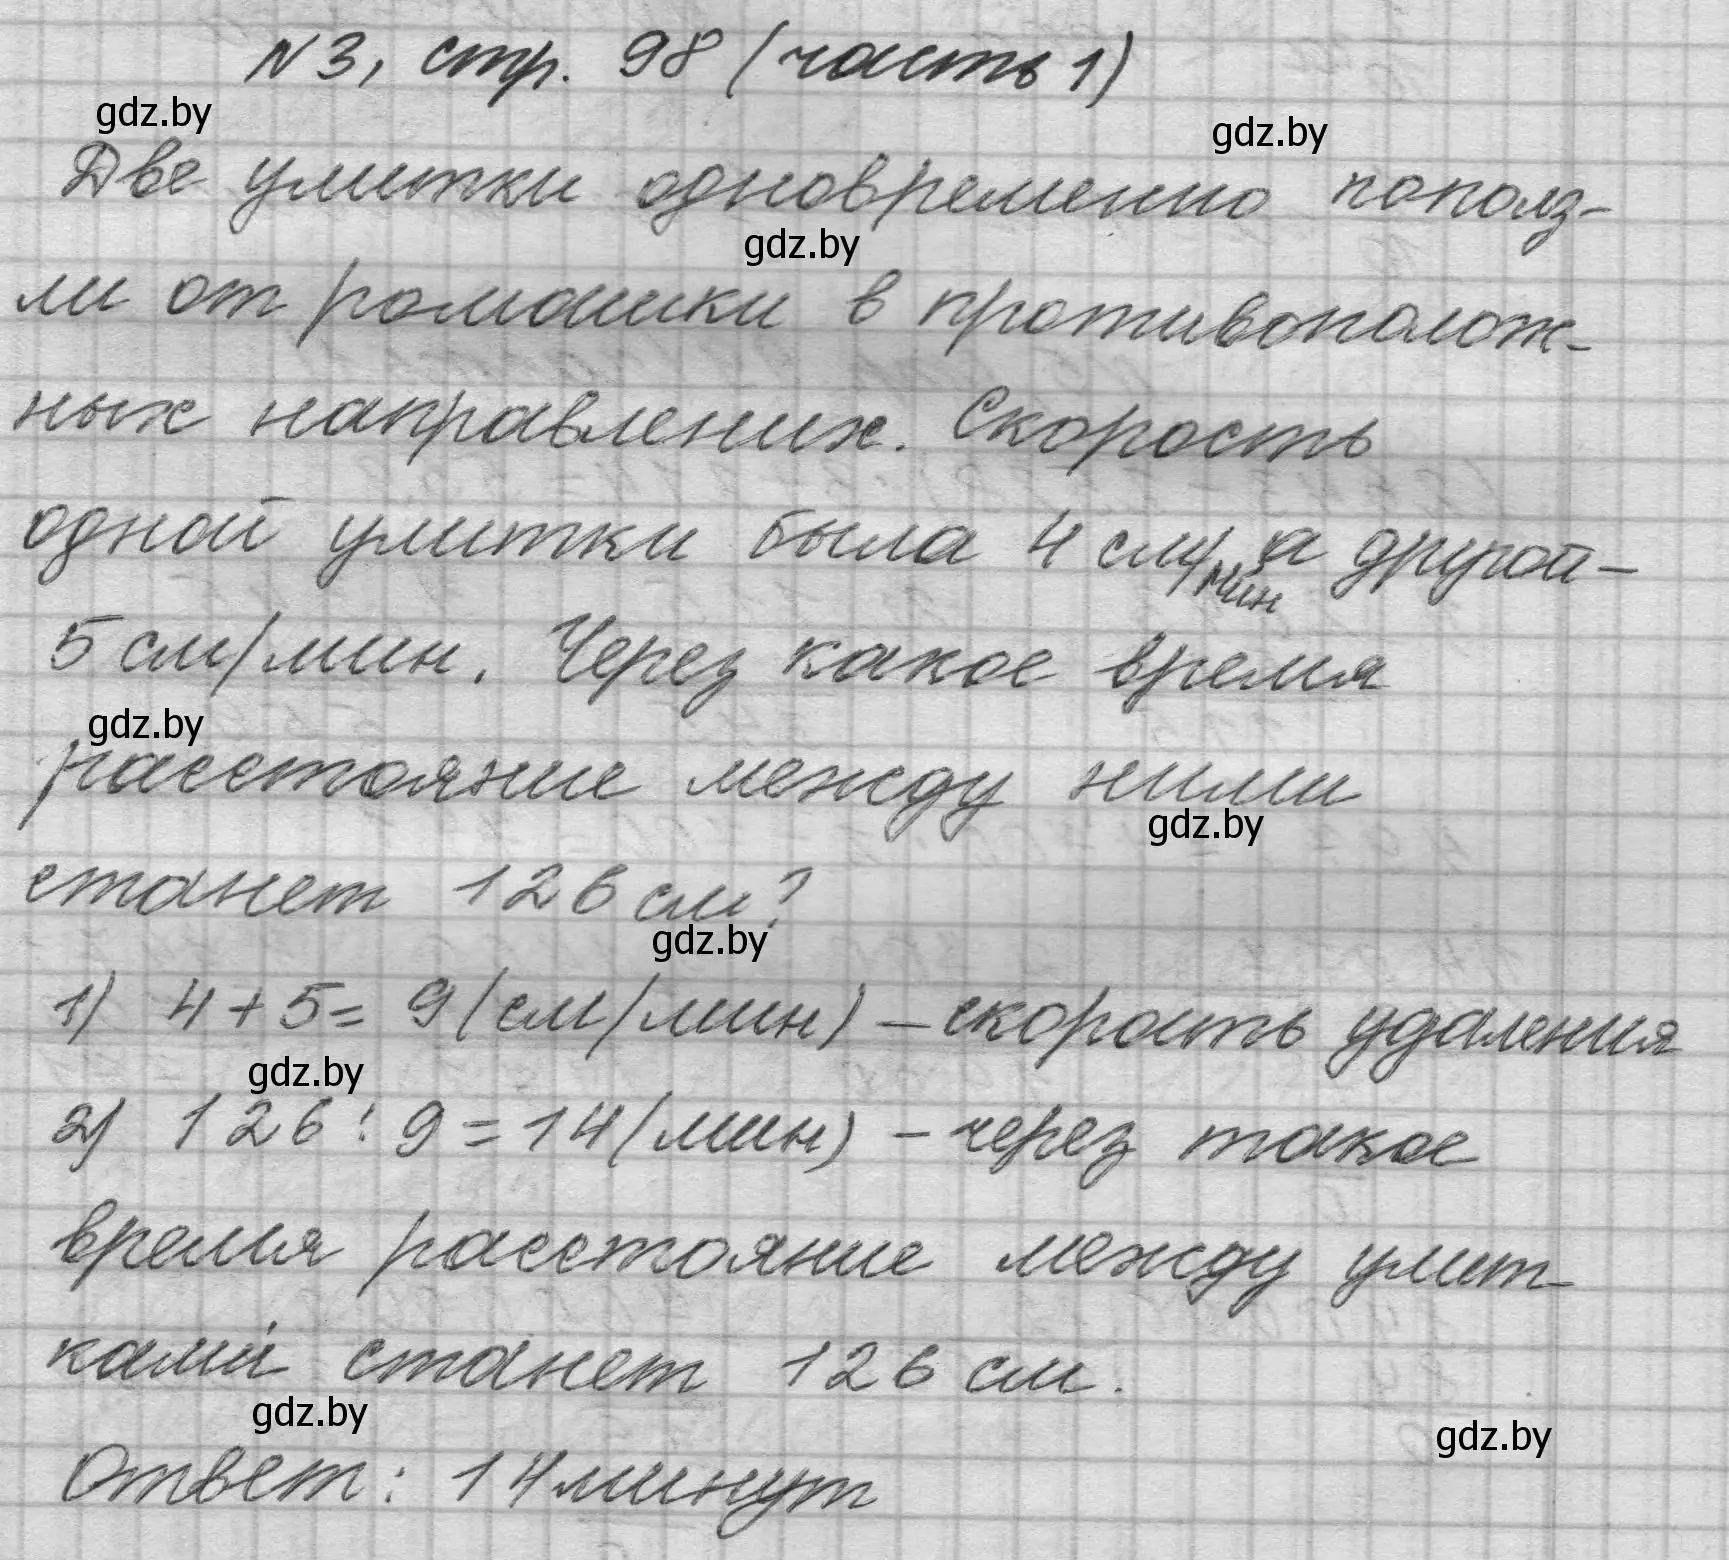 N3, стр. 98 (часть 1)
gdz.by
gdz.by
Две улитки одновременно пополз-
gdz.by
ли от ромашки в противополож-
ных направлениях. Скорость
одной улитки была 4 см/мин а другой -
5 см/мин. Через какое время
gdz.by
расстояние между ними
gdz.by
станет 126 см?
gdz.by
1) 4 + 5 = 9 (см/мин) - скорость удаления
gdz.by
2) 126 : 9 = 14 (мин) - через такое
время расстояние между улит-
ками станет 126 см.
gdz.by
gdz.by
Ответ: 14 минут